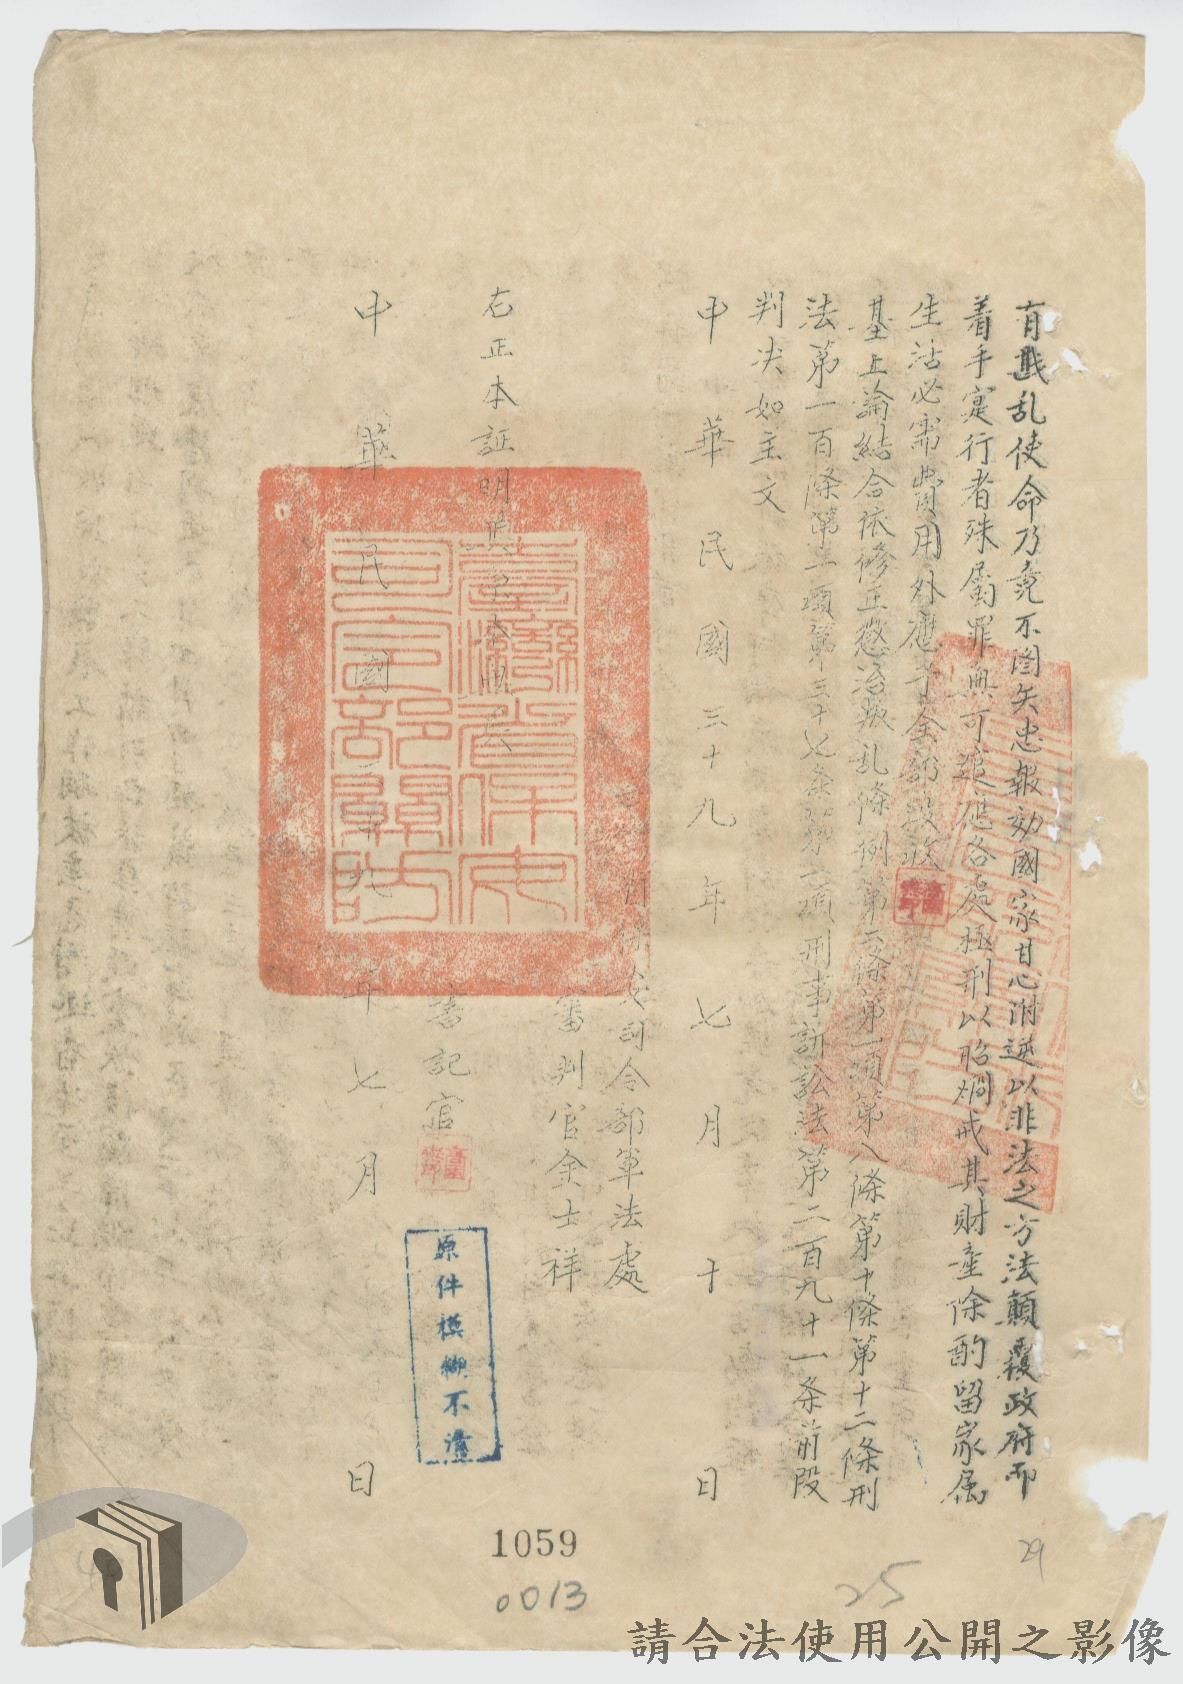 有戡乱使命乃竟不图矢忠報効國家甘心附逆以非法之方法顛覆政府而
着手寔行者殊屬罪無可逭应各處極刑以昭烱戒其財產除酌留家属
生活必需費用外應予全部没收
基上論結合依修正懲治叛乱條例第二條第一項第八條第十條第十二條刑
法第一百條第一項第三十七条第一項刑事訴訟法第二百九十一条前段
判决如主文
中華民國三十九年七月十日
保安司令部軍法處
審判官余士祥
右正本証明與原本無異
書記官
中華民國三十九年七月 日
臺灣省保安司令部關防
原件模糊不清
1059
0013
25
29
請合法使用公開之影像